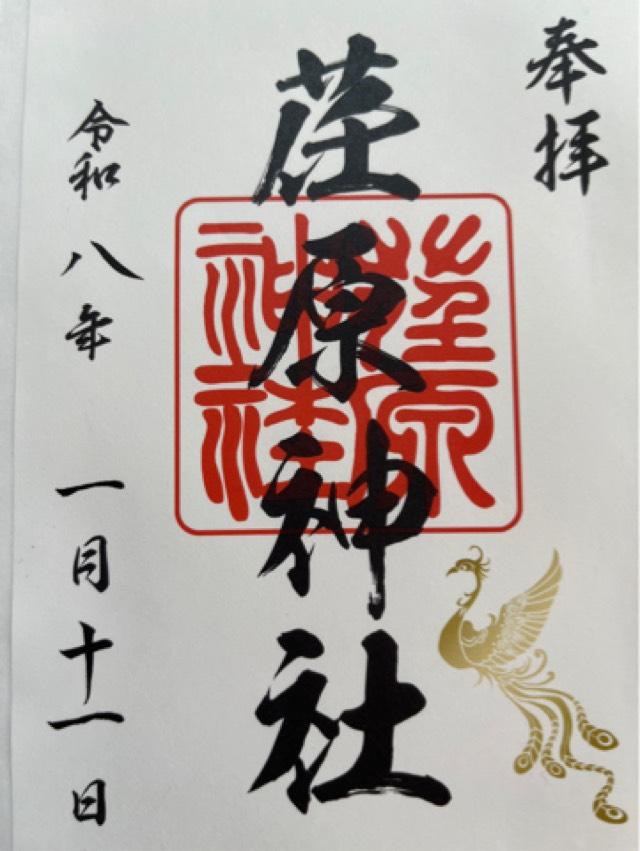 奉拝
荏原神社
荏原神社
令和八年一月十一日